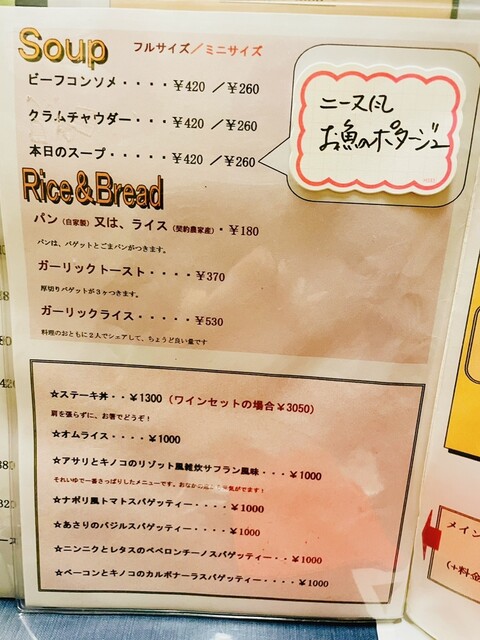 Soup フルサイズ／ミニサイズ
ビーフコンソメ・・・・￥420 ／￥260
クラムチャウダー・・・￥420 ／￥260
本日のスープ・・・・・￥420 ／￥260
ニース風
お魚のポタージュ
Rice&Bread
パン（自家製）又は、ライス（契約農家産）・￥180
パンは、バゲットとごまパンがつきます。
ガーリックトースト・・・・￥370
厚切りバゲットが３ヶつきます。
ガーリックライス・・・・・￥530
料理のおともに２人でシェアして、ちょうど良い量です
☆ステーキ丼・・￥1300（ワインセットの場合￥3050）
肩を張らずに、お箸でどうぞ！
☆オムライス・・・・￥1000
☆アサリとキノコのリゾット風雑炊サフラン風味・・・￥1000
それいゆで一番さっぱりしたメニューです。おなかの
気がでます！
☆ナポリ風トマトスパゲッティー・・・・￥1000
☆あさりのバジルスパゲッティー・・・・￥1000
☆ニンニクとレタスのペペロンチーノスパゲッティー・・・￥1000
☆ベーコンとキノコのカルボナーラスパゲッティー・・・・￥1000
メイン
(+料金